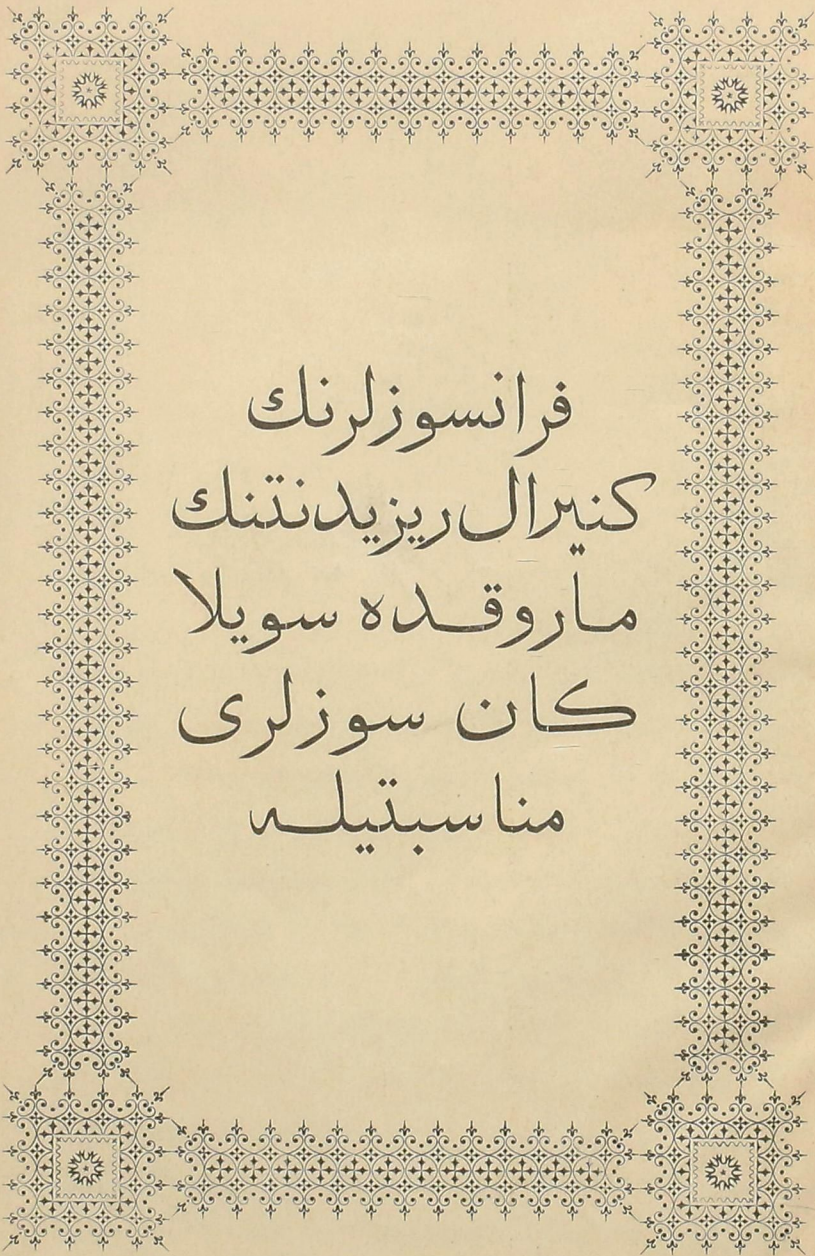 فرانسوزلرنك
كنيرال ريزيدنتنك
ماروقده سويلا
كان سوزلرى
مناسبتيله